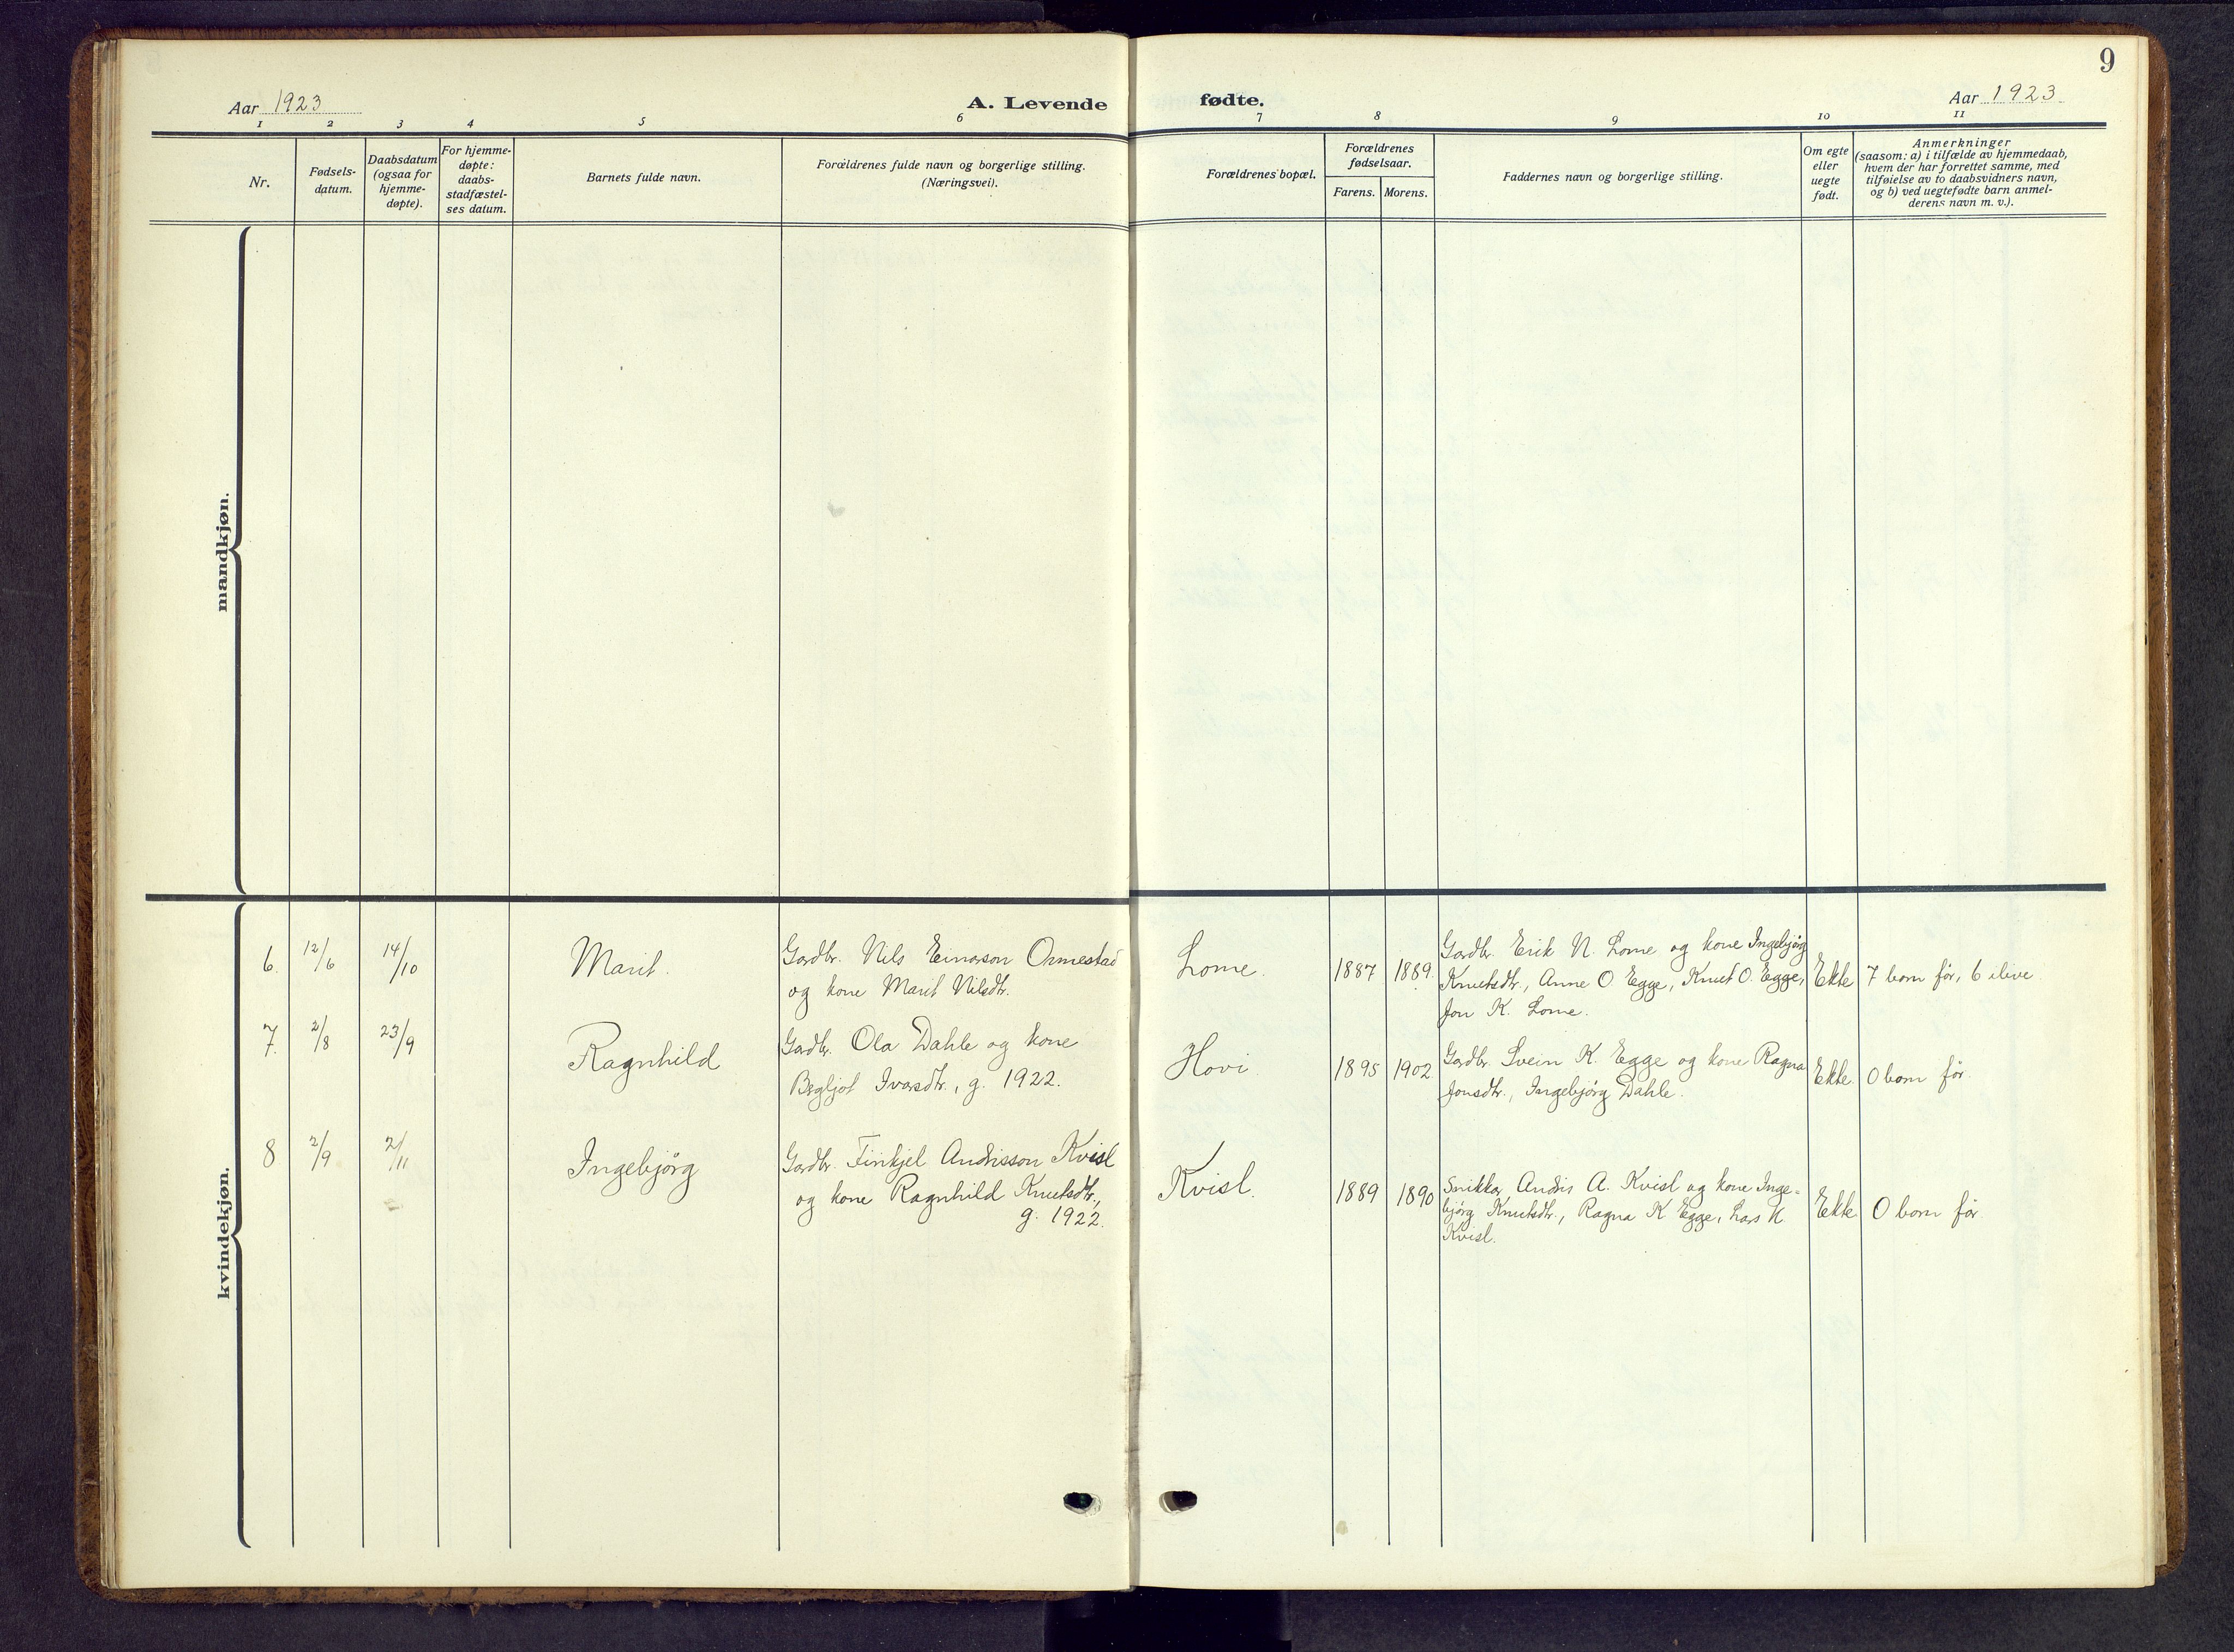 9
Aar 1923
A. Levende fødte.
Aar 1923
1 2 3 4 5 6 7 8 9 10 11
Nr.
Fødsels-
datum.
Daabsdatum
(ogsaa for
hjemme-
døpte).
For hjemme-
døpte:
daabs-
stadfæstel-
ses datum.
Barnets fulde navn.
Forældrenes fulde navn og borgerlige stilling.
(Næringsvei).
Forældrenes bopæl.
Forældrenes
fødselsaar.
Farens. Morens.
Faddernes navn og borgerlige stilling.
Om egte
eller
uegte
født.
Anmerkninger
(saasom: a) i tilfælde av hjemmedaab,
hvem der har forrettet samme, med
tilføielse av to daabsvidners navn,
og b) ved uegtefødte barn anmel-
derens navn m. v.).
mandkjøn.
kvindekjøn.
6. 12/6 14/10 Marit.
Gardbr. Nils Einarson Ormestad
og kone Marit Nilsdtr.
Lome. 1887 1889.
Gardbr. Erik N. Lome og kone Ingebjørg
Knutsdtr., Anne O. Egge, Knut O. Egge,
Jon K. Lome.
Ekte 7 born før, 6 ilive.
7. 2/8 23/9 Ragnhild
Gardbr. Ola Dahle og kone
Bergljot Ivarsdtr., g. 1922.
Hovi. 1895 1902
Gardbr. Svein K. Egge og kone Ragna
Jonsdtr., Ingebjørg Dahle.
Ekte. 0 born før.
8 2/9 2/11 Ingebjørg
Gardbr. Finkjel Andrisson Kvisl
og kone Ragnhild Knutsdtr.,
g. 1922.
Kvisl. 1889 1890
Snikkar Andris A. Kvisl og kone Inge-
bjørg Knutsdtr., Ragna K. Egge, Lars K.
Kvisl.
Ekte 0 born før.